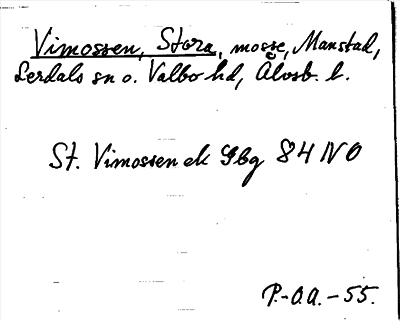 Vimossen, Stora, mosse, Manstad,
Lerdals sn o. Valbo hd, Älvsb. l.
St. Vimossen ek Gbg 84 NO
P.-O.A.-55.